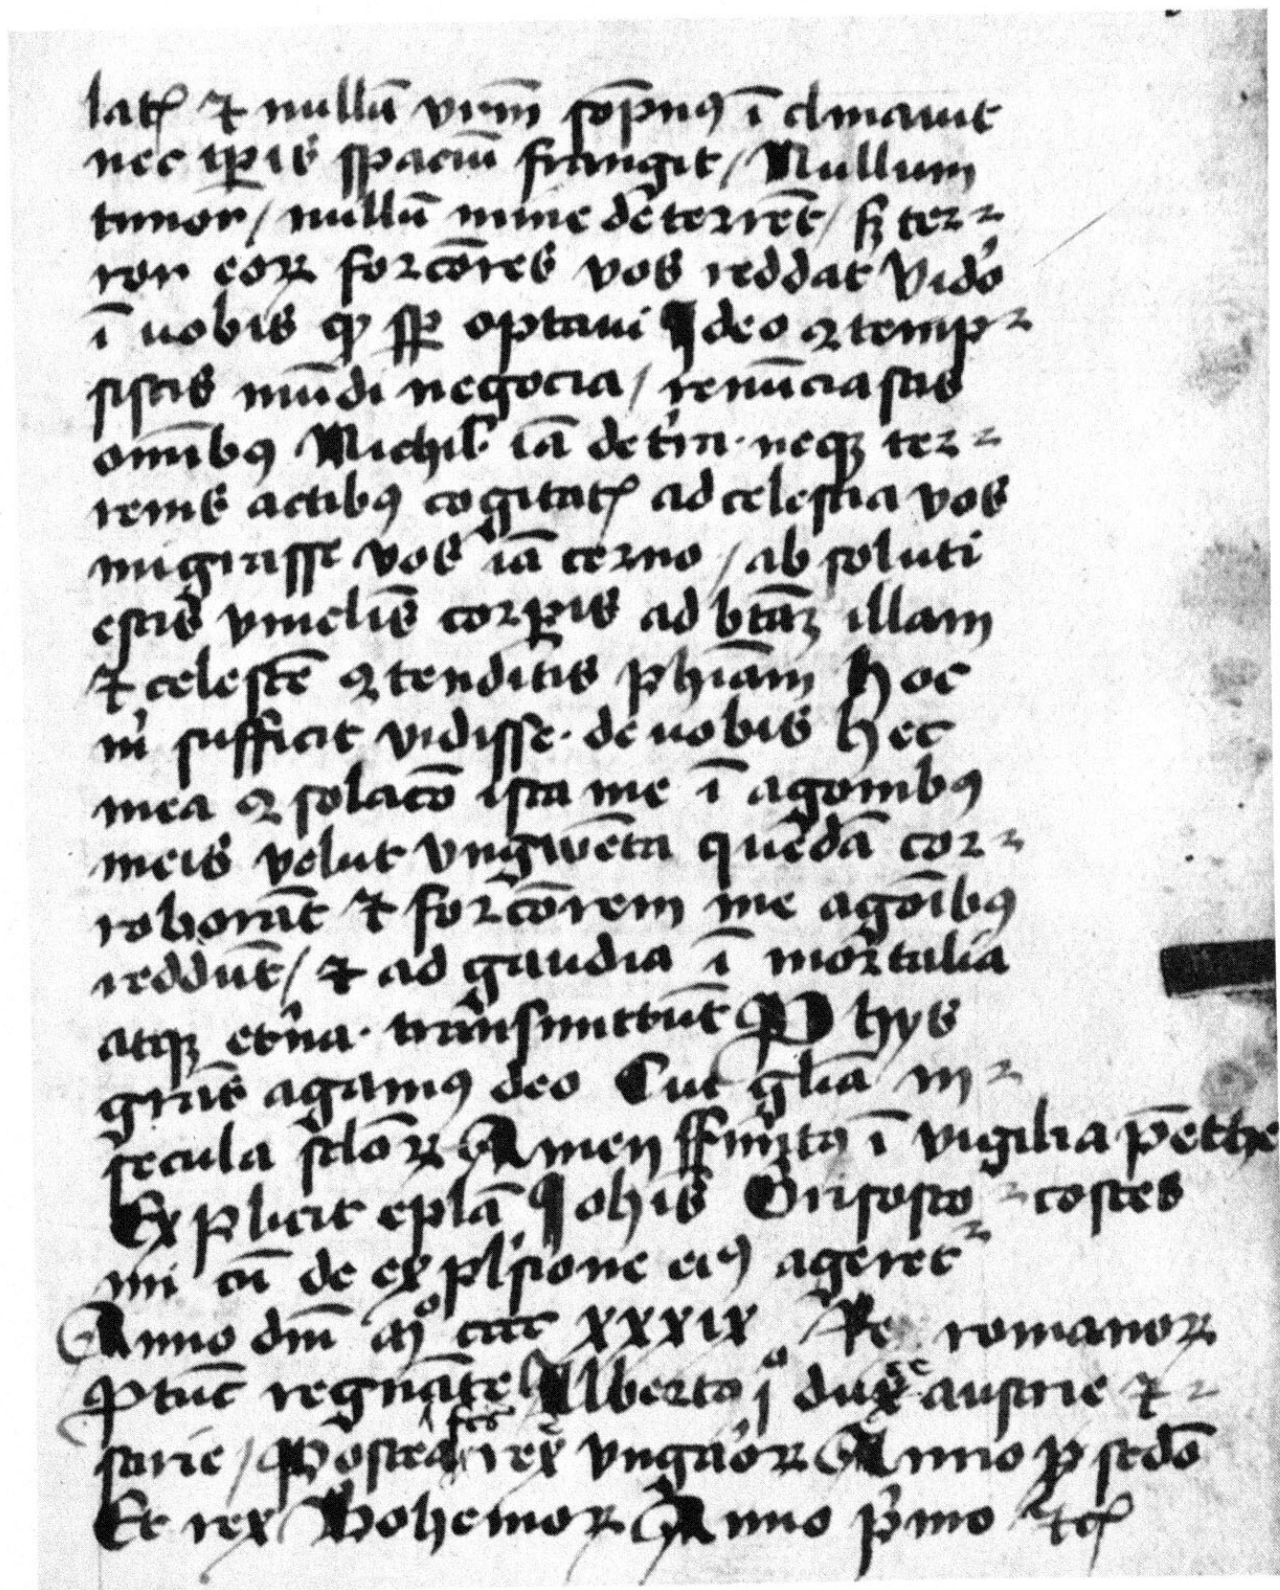 lat᷒ ⁊ nullū vr̄m sōpnꝰ ī clinauit
nec tp̄is spaciū frangit / Nullum
timor / nullū mine dēterrēt / sꝫ ter⸗
ror eoꝝ forcōres vos reddat vidō
ī uobis qđ sp̄ optaui Ideo ꝯtemp⸗
sistis mūdi negocia / renūciastis
om̄ibꝰ Nichil iā de t̄ra · neqꝫ ter⸗
renis actibꝰ cogitat᷒ ad celestia vos
migrasse vos iā cerno / ab soluti
estis vincl̄is corꝑis ad btāꝫ illam
⁊ celestē ꝯtenditis ph̄iam Hoc
m̄ sufficit vidisse · de uobis Hec
mea ꝯsolacō ista me ī agonibꝰ
meis velut vngwēta quedā cor⸗
roborāt ⁊ forcōrem me agōibꝰ
reddūt / ⁊ ad gaudia ī mortalia
atqꝫ et̄na · transmittūt P hys
gr̄as agamꝰ deo Cui gl̄ia in⸗
secula sclōꝝ Amen ffinita ī vigilia pēthe
Explicit epl̄a Ioh̄is Crisosto⸗ costes
mi cū de expl̄sione eiꝰ ageret᷑
Anno dn̄i mͦ cccc xxxix Re romanoꝝ
ꝓtūc regnāte Alberto jͦ duxͤ austrie ⁊⸗
starie / Postea fcs rex vngaroꝝ Anno ꝓ sedō
Et rex Bohemoꝝ Anno p̄mo ⁊c᷒